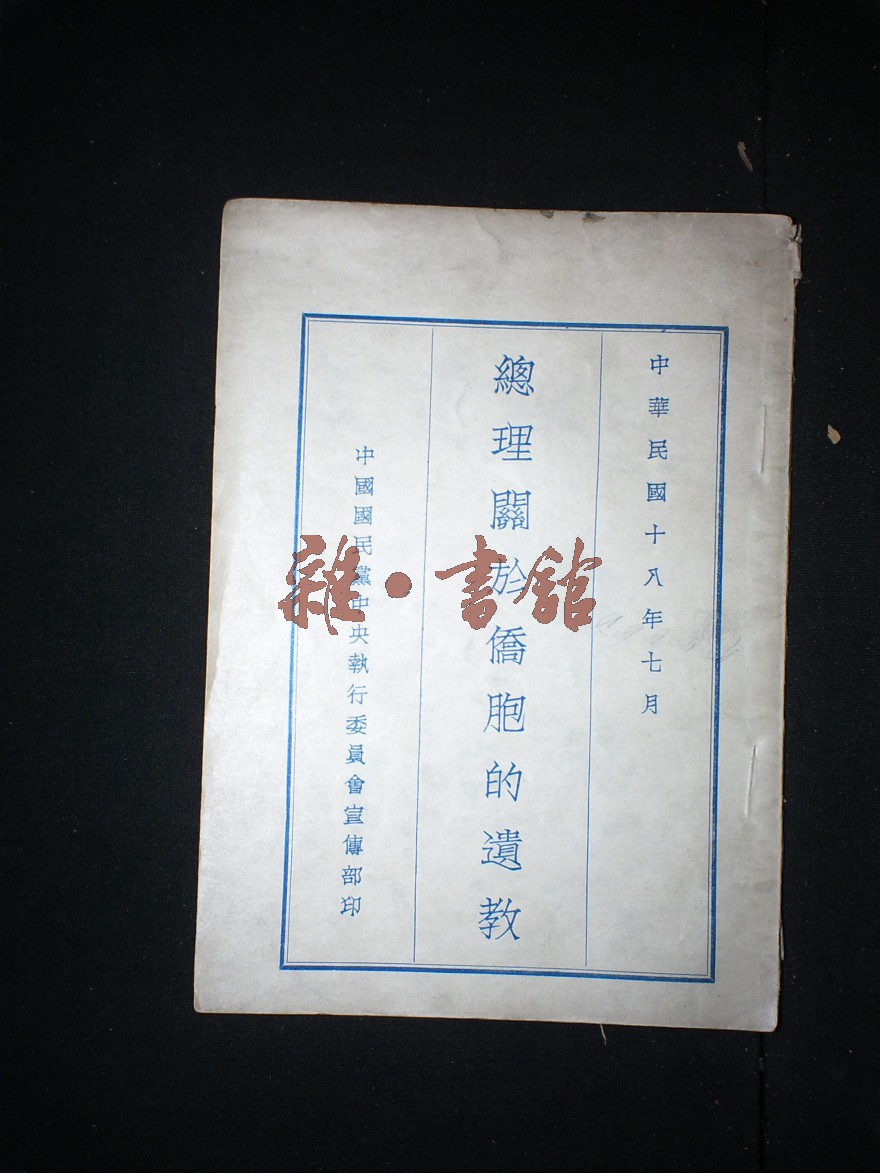 中華民國十八年七月
總理關於僑胞的遺教
中國國民黨中央執行委員會宣傳部印
雜·書館